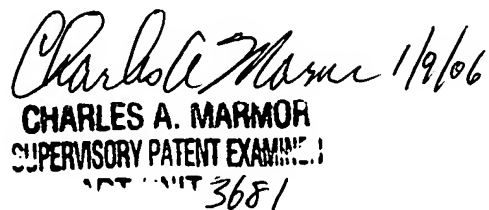 Charles A Marmor 1/9/06
CHARLES A. MARMOR
SUPERVISORY PATENT EXAMINER
ART UNIT 3681